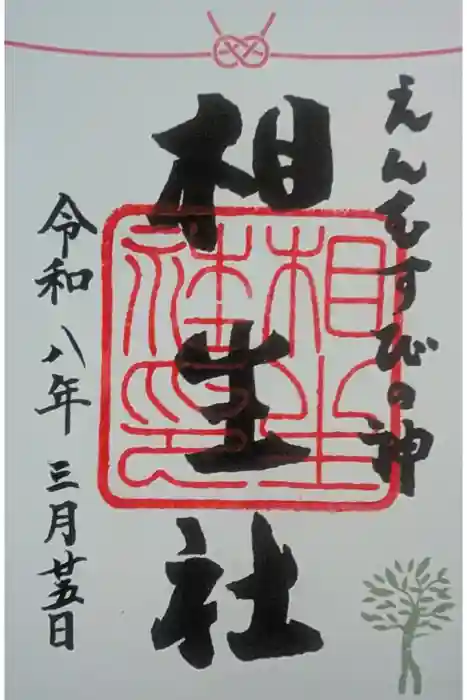 えんむすびの神
相生社
相生社印
令和八年三月廿五日